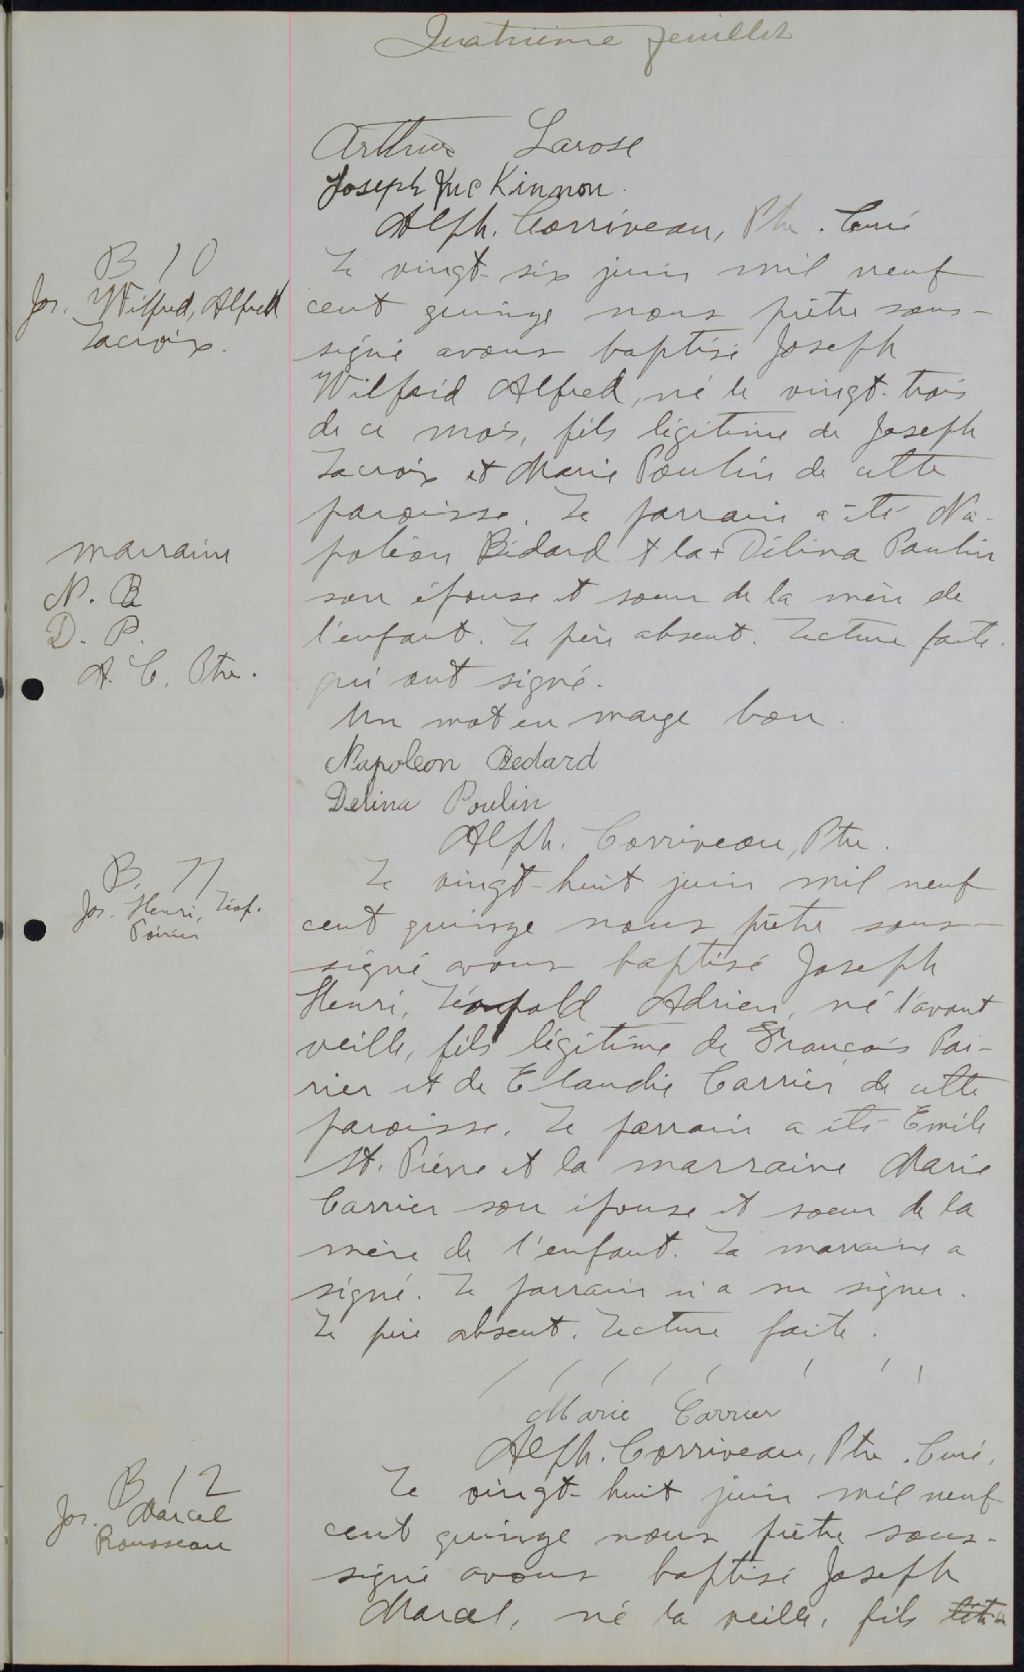 Quatrième feuillet
Arthur Larose
Joseph McKinnon
Alph. Corriveau, Ptre. Curé
B 10
Jos. Wilfred, Alfred
Lacroix.
Le vingt-six juin mil neuf
cent quinze nous prêtre sous-
signé avons baptisé Joseph
Wilfrid Alfred, né le vingt-trois
de ce mois, fils légitime de Joseph
Lacroix et Marie Poulin de cette
paroisse. Le parrain a été Na-
poléon Bédard & la + Délina Poulin
son épouse et soeur de la mère de
l'enfant. Le père absent. Lecture faite.
qui ont signé.
Un mot en marge bon.
marraine
N. B
D. P.
A. C. Ptre.
Napoleon Bedard
Delina Poulin
Alph. Corriveau, Ptre.
B. 11
Jos. Henri, Léop.
Poirier
Le vingt-huit juin mil neuf
cent quinze nous prêtre sous-
signé avons baptisé Joseph
Henri, Léopold Adrien, né l'avant
veille, fils légitime de François Poi-
rier et de Claudie Carrier de cette
paroisse. Le parrain a été Emile
St. Pierre et la marraine Marie
Carrier son épouse et soeur de la
mère de l'enfant. La marraine a
signé. Le parrain n'a su signer.
Le père absent. Lecture faite.
Marie Carrier
Alph. Corriveau, Ptre. Curé.
B 12
Jos. Marcel
Rousseau
Le vingt-huit juin mil neuf
cent quinze nous prêtre sous-
signé avons baptisé Joseph
Marcel, né la veille, fils